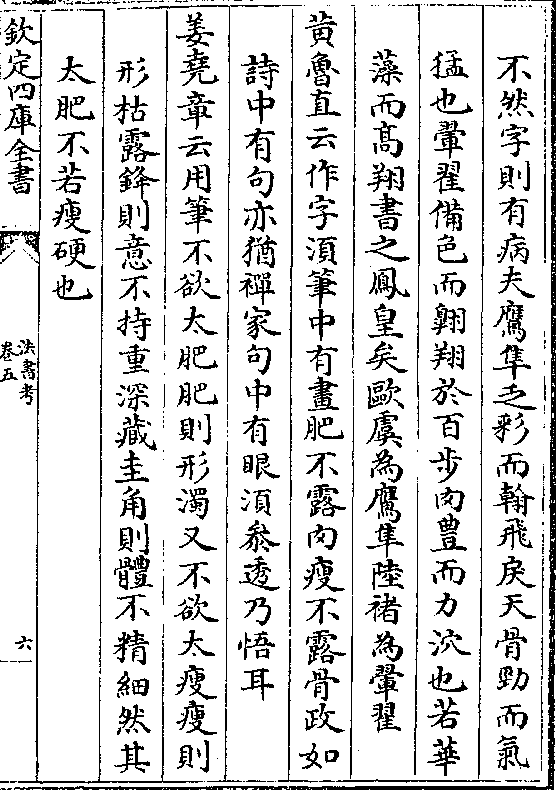 不然字則有病夫鷹隼乏彩而翰飛戾天骨勁而氣
猛也翬翟備色而翺翔於百步肉豊而力沉也若華
藻而髙翔書之鳳皇矣歐虞為鷹隼陸禇為翬翟
黄魯直云作字湏筆中有畫肥不露肉瘦不露骨政如
詩中有句亦猶禪家句中有眼湏叅透乃悟耳
姜堯章云用筆不欲太肥肥則形濁又不欲太瘦瘦則
形枯露鋒則意不持重深藏圭角則體不精細然其
太肥不若瘦硬也
欽定四庫全書
法書考
卷五
六